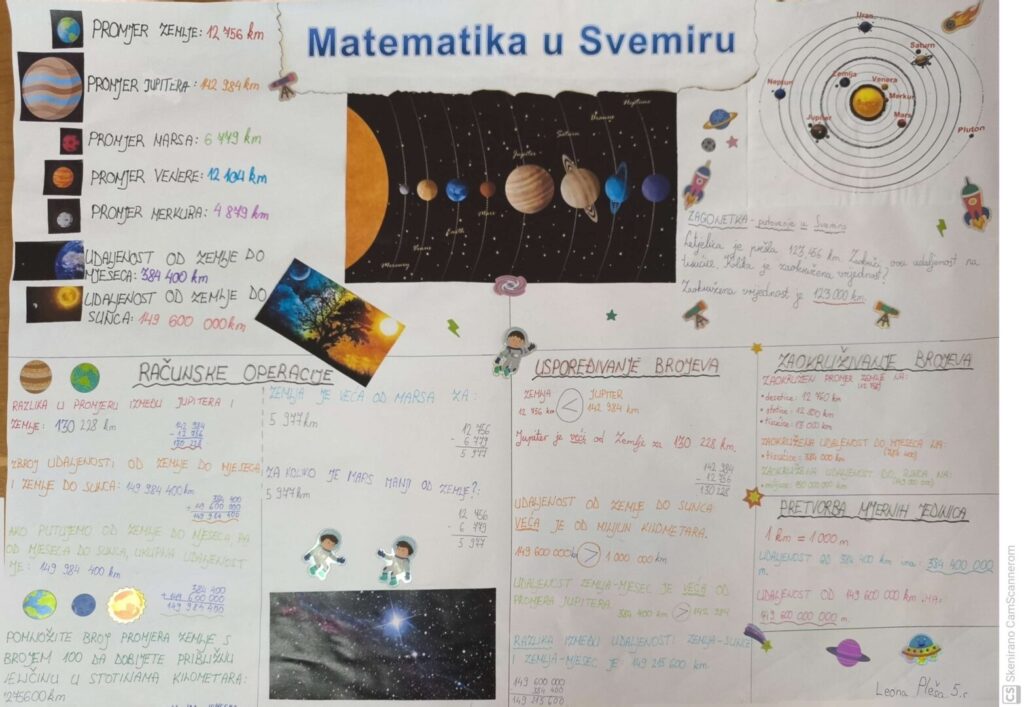 Matematika u Svemiru
PROMJER ZEMLJE: 12 756 km
PROMJER JUPITERA: 142 984 km
PROMJER MARSA: 6 779 km
PROMJER VENERE: 12 104 km
PROMJER MERKURA: 4 879 km
UDALJENOST OD ZEMLJE DO
MJESECA: 384 400 km
UDALJENOST OD ZEMLJE DO
SUNCA: 149 600 000 km
Neptune
Uranus
Saturn
Jupiter
Mars
Earth
Venus
Mercury
Uran
Saturn
Neptun
Zemlja
Venera
Merkur
Mars
Jupiter
Pluton
ZAGONETKA - putovanje u Svemiru
Letjelica je prešla 123 456 km. Zaokruži ovu udaljenost na
tisućice. Kolika je zaokružena vrijednost?
Zaokružena vrijednost je 123 000 km.
RAČUNSKE OPERACIJE
RAZLIKA U PROMJERU IZMEĐU JUPITERA I
ZEMLJE: 130 228 km
142 984
- 12 756
130 228
ZBROJ UDALJENOSTI OD ZEMLJE DO MJESECA
I ZEMLJE DO SUNCA: 149 984 400 km
384 400
+ 149 600 000
149 984 400
AKO PUTUJEMO OD ZEMLJE DO MJESECA, PA
OD MJESECA DO SUNCA, UKUPNA UDALJENOST
JE: 149 984 400 km
384 400
+ 149 600 000
149 984 400
POMNOŽITE BROJ PROMJERA ZEMLJE S
BROJEM 100 DA DOBIJETE PRIBLIŽNU
U STOTINAMA KILOMETARA:
ZEMLJA JE VEĆA OD MARSA ZA:
5 977 km
12 756
- 6 779
5 977
ZA KOLIKO JE MARS MANJI OD ZEMLJE?:
5 977 km
12 756
- 6 779
5 977
USPOREĐIVANJE BROJEVA
ZEMLJA < JUPITER
12 756 km 142 984 km
Jupiter je veći od Zemlje za 130 228 km.
142 984
- 12 756
130 228
UDALJENOST OD ZEMLJE DO SUNCA
VEĆA JE OD MILIJUN KILOMETARA.
149 600 000 km > 1 000 000 km
UDALJENOST ZEMLJA-MJESEC JE VEĆA OD
PROMJERA JUPITERA.
384 400 km > 142 984
RAZLIKA IZMEĐU UDALJENOSTI ZEMLJA-SUNCE
I ZEMLJA-MJESEC JE 149 215 600 km.
149 600 000
384 400
149 215 600
ZAOKRUŽIVANJE BROJEVA
ZAOKRUŽEN PROMJER ZEMLJE NA:
(12 756)
• desetice: 12 760 km
• stotice: 12 800 km
• tisućice: 13 000 km
ZAOKRUŽENA UDALJENOST DO MJESECA NA:
(384 400)
• tisućice: 384 000 km
ZAOKRUŽENA UDALJENOST DO SUNCA NA:
(149 600 000)
• milijune: 150 000 000 km
PRETVORBA MJERNIH JEDINICA
1 km = 1 000 m
UDALJENOST OD 384 400 km ima: 384 400 000
m.
UDALJENOST OD 149 600 000 km IMA:
149 600 000 000 m.
Leona Pleša 5.c
CS Skenirano CamScannerom